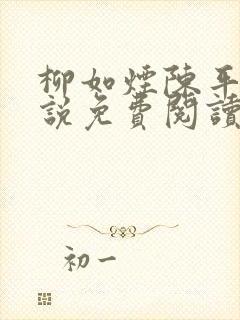 柳如煙陳平
說免費閱讀
初一